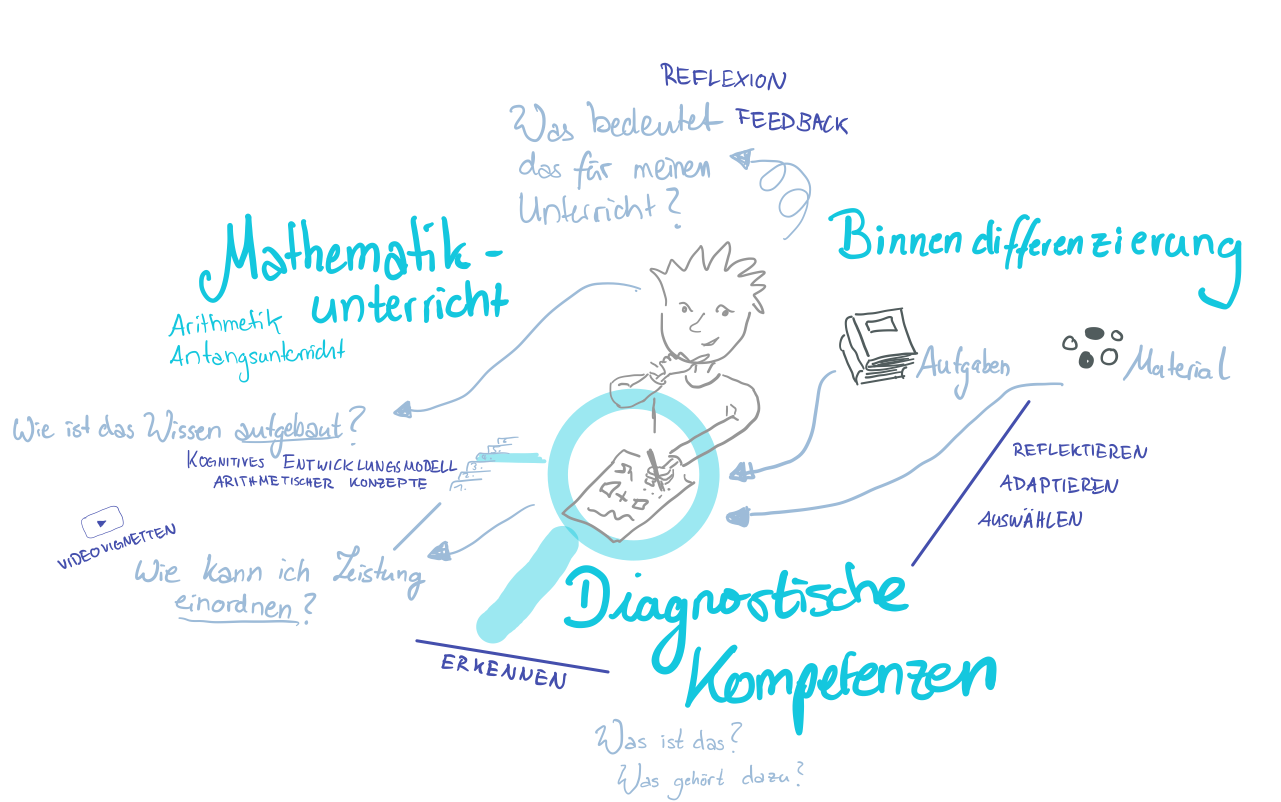 REFLEXION
Was bedeutet
FEEDBACK
das für meinen
Unterricht?
Mathematik-
unterricht
Arithmetik
Anfangsunterricht
Binnendifferenzierung
Aufgaben
Material
Wie ist das Wissen aufgebaut?
KOGNITIVES ENTWICKLUNGSMODELL
ARITHMETISCHER KONZEPTE
1.
2.
3.
REFLEKTIEREN
ADAPTIEREN
AUSWÄHLEN
VIDEOVIGNETTEN
Wie kann ich Leistung
einordnen?
ERKENNEN
Diagnostische
Kompetenzen
Was ist das?
Was gehört dazu?